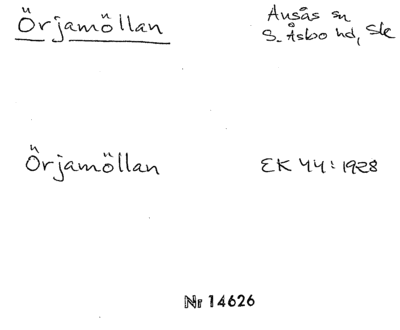 Örjamöllan
Ausås sn
S. Åsbo hd, Sk
Örjamöllan
EK 44:1928
Nr 14626